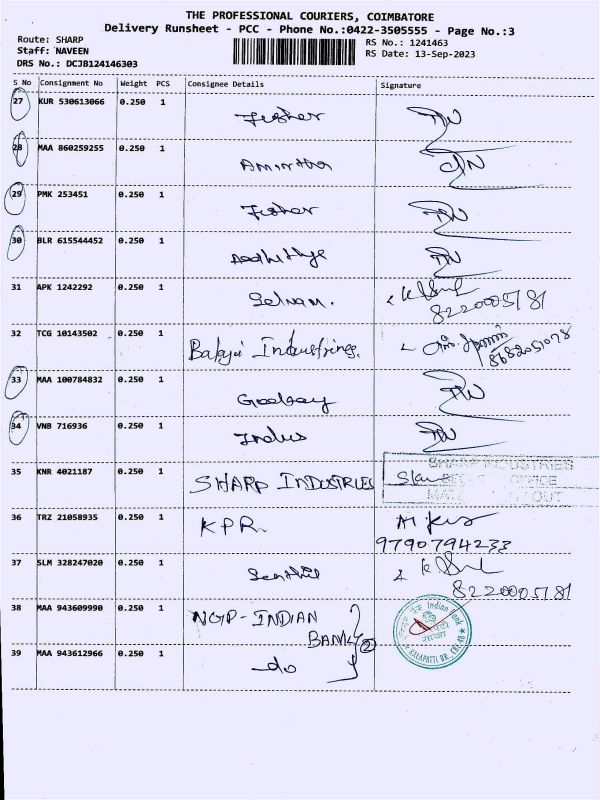 THE PROFESSIONAL COURIERS, COIMBATORE
Delivery Runsheet - PCC - Phone No.:0422-3505555 - Page No.:3
Route: SHARP
RS No.: 1241463
Staff: NAVEEN
RS Date: 13-Sep-2023
DRS No.: DCJB124146303
S No Consignment No Weight PCS Consignee Details Signature
27 KUR 530613066 0.250 1 Fisher
28 MAA 860259255 0.250 1
29 PMK 253451 0.250 1 Fisher
30 BLR 615544452 0.250 1
31 APK 1242292 0.250 1 Selvam. 8220005181
32 TCG 10143502 0.250 1 Balaji Industries.
33 MAA 100784832 0.250 1
34 VNB 716936 0.250 1 Indus
35 KNR 4021187 0.250 1 SHARP INDUSTRIES
SHARP INDUSTRIES
36 TRZ 21058935 0.250 1 KPR.
9790794233
37 SLM 328247020 0.250 1 Senthil
8220005181
38 MAA 943609990 0.250 1 NGP-INDIAN
BANK 2
Indian Bank
39 MAA 943612966 0.250 1 -do